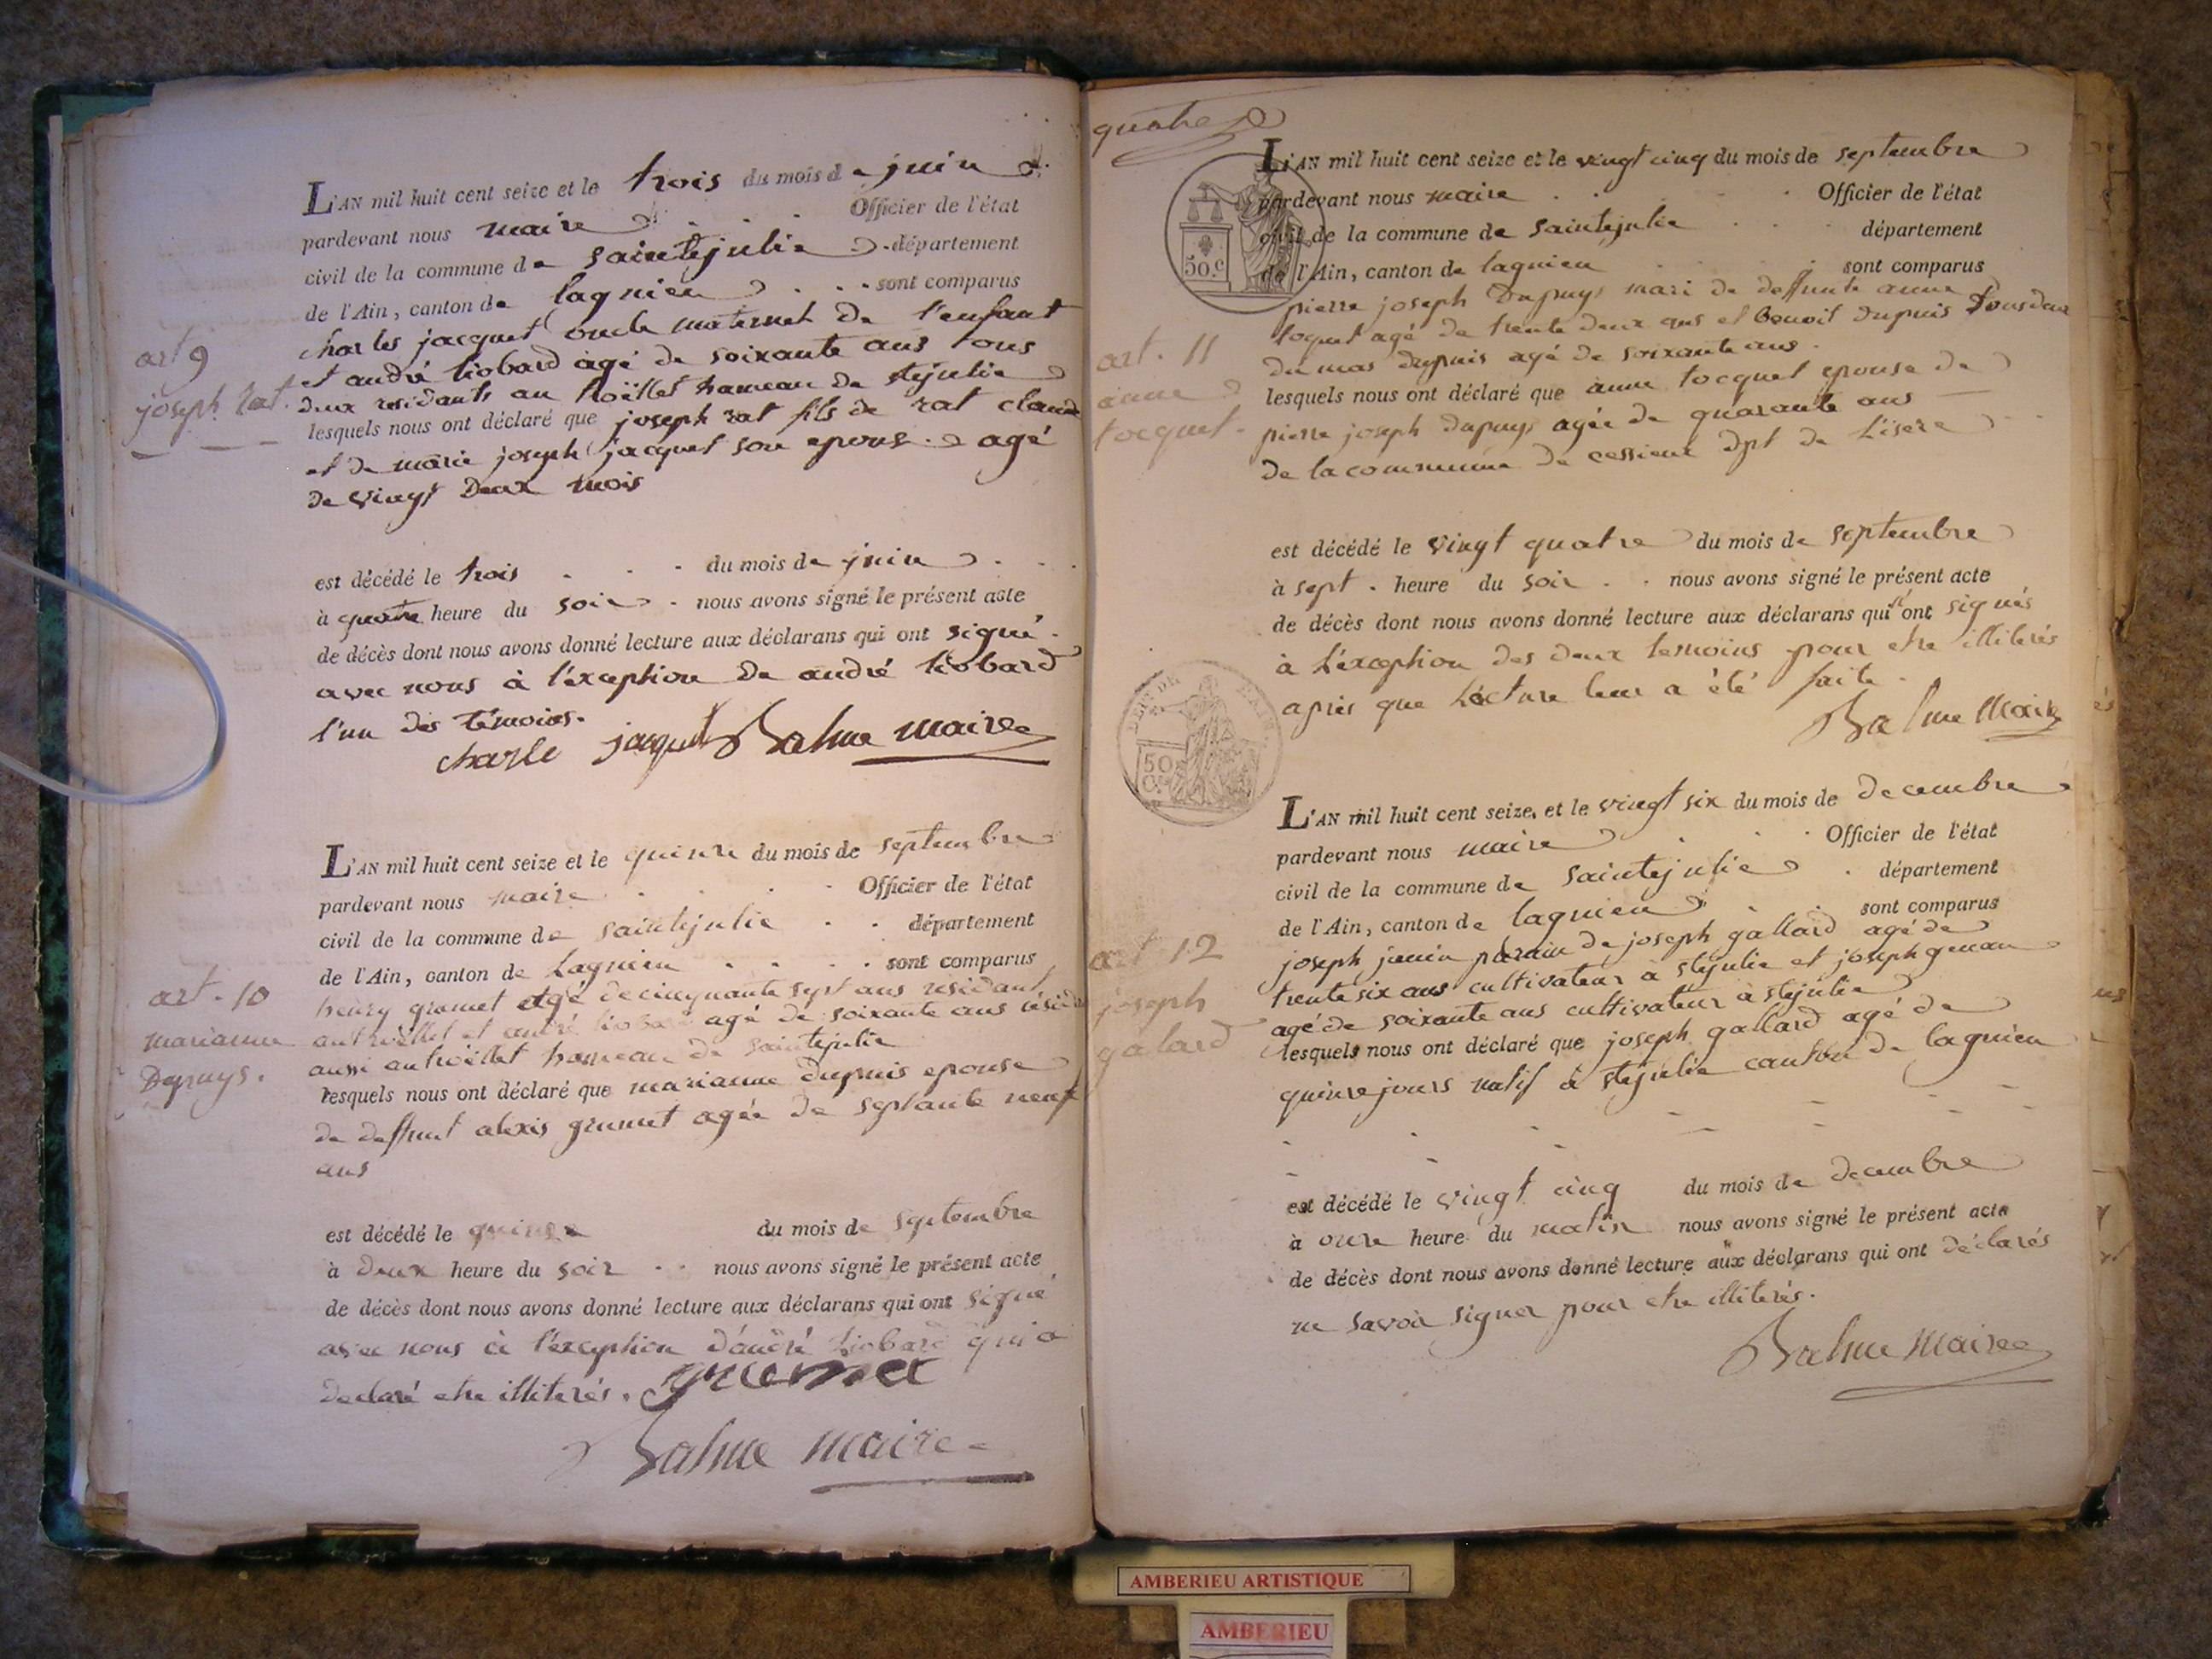 L'AN mil huit cent seize et le trois du mois de juin
pardevant nous maire Officier de l'état
civil de la commune de saintejulie département
de l'Ain, canton de lagnieu sont comparus
charles jacquet oncle maternel de l'enfant
et andré liobard agé de soixante ans tous
deux residants au hameau de stejulie
art 9
joseph rat.
lesquels nous ont déclaré que joseph rat fils de rat claude
et de marie joseph jacquet son epouse agé
de vingt deux mois
est décédé le trois du mois de juin
à quatre heure du soir nous avons signé le présent acte
de décès dont nous avons donné lecture aux déclarans qui ont signé
avec nous à l'éxception de andré liobard
l'un des témoins.
charle jaquet Balme maire
L'AN mil huit cent seize et le quinze du mois de septembre
pardevant nous maire Officier de l'état
civil de la commune de saintejulie département
de l'Ain, canton de Lagnieu sont comparus
art. 10
marianne
Dupuys.
henry grumet agé de cinquante sept ans residant
et andré liobard agé de soixante ans
aussi hameau de saintejulie
lesquels nous ont déclaré que marianne dupuis epouse
de deffunt alexis grumet agée de septante neuf
ans
est décédé le quinze du mois de septembre
à deux heure du soir nous avons signé le présent acte
de décès dont nous avons donné lecture aux déclarans qui ont signé
avec nous à l'éxception d'andré liobard qui a
declaré etre illiterés. grumet
Balme maire
quatre
50.c
L'AN mil huit cent seize et le vingt cinq du mois de septembre
pardevant nous maire Officier de l'état
civil de la commune de saintejulie département
de l'Ain, canton de lagnieu sont comparus
art. 11
anne
tocquet.
pierre joseph Dupuys mari de deffunte anne
toquet agé de trente deux ans et benoit dupuis tous deux
du mas dupuis agé de soixante ans.
lesquels nous ont déclaré que anne tocquet epouse de
pierre joseph dupuys agée de quarante ans
de la commune de cessieux dpt de L'isere
est décédé le vingt quatre du mois de septembre
à sept heure du soir nous avons signé le présent acte
de décès dont nous avons donné lecture aux déclarans qui ont signés
à L'éxception des deux temoins pour etre illiterés
après que Lécture leur a été faite.
Balme Maire
50
C.
L'AN mil huit cent seize, et le vingt six du mois de decembre
pardevant nous maire Officier de l'état
civil de la commune de saintejulie département
de l'Ain, canton de lagnieu sont comparus
art 12
joseph
galard
joseph janin parain de joseph gallard agé de
trente six ans cultivateur à stejulie et joseph
agé de soixante ans cultivateur à stejulie
lesquels nous ont déclaré que joseph gallard agé de
quinze jours natif à stejulie canton de lagnieu
est décédé le vingt cinq du mois de decembre
à onze heure du matin nous avons signé le présent acte
de décès dont nous avons donné lecture aux déclarans qui ont déclarés
ne savoir signer pour etre illiterés.
Balme Maire
AMBERIEU ARTISTIQUE
AMBERIEU